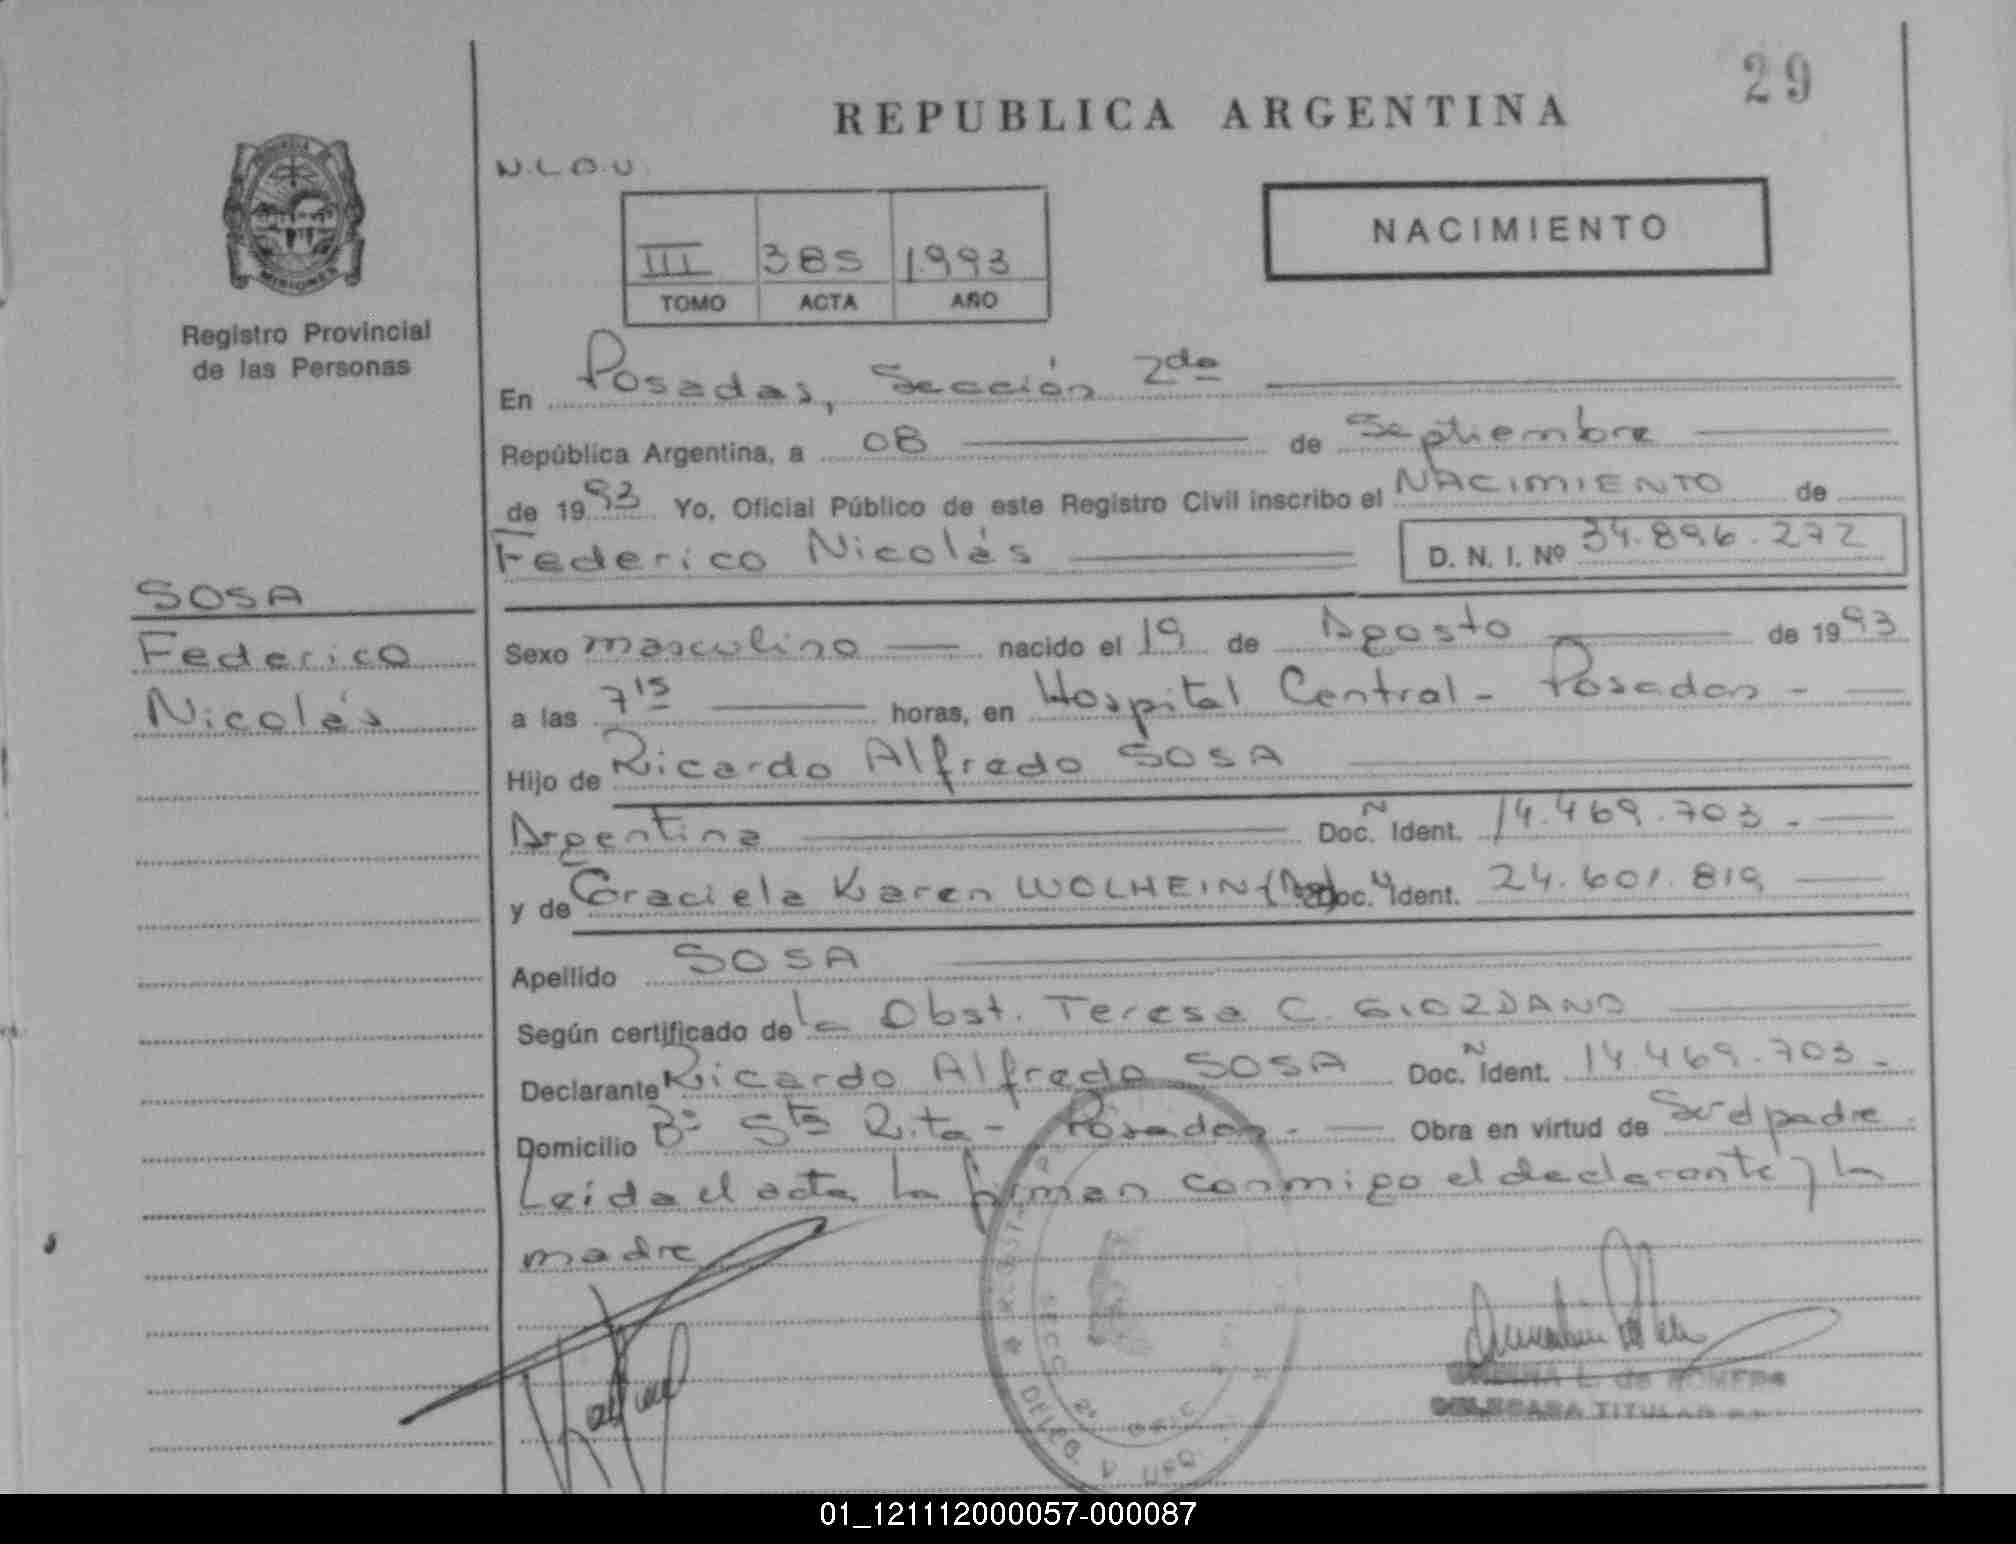 29
REPUBLICA ARGENTINA
N.L.O.U.
NACIMIENTO
III 385 1.993
TOMO ACTA AÑO
MISIONES
Registro Provincial
de las Personas
En Posadas, Sección 2da
República Argentina, a 08 de Septiembre
de 1993 Yo, Oficial Público de este Registro Civil inscribo el NACIMIENTO de
Federico Nicolás D. N. I. Nº 34.896.272
SOSA
Federico
Nicolás
Sexo masculino nacido el 19 de Agosto de 1993
a las 7 15 horas, en Hospital Central - Posadas -
Hijo de Ricardo Alfredo SOSA
Argentina Doc. Ident. 14.469.703.-
y de Graciela Karen WOLHEIN (Arg) Doc. Ident. 24.601.819
Apellido SOSA
Según certificado de la Obst. Teresa C. GIORDANO
Declarante Ricardo Alfredo SOSA Doc. Ident. 14.469.703.-
Domicilio Bº Sta Rita - Posadas.- Obra en virtud de Ser el padre.
Leída el acta la firman conmigo el declarante y la
madre
L. de ROMERO
DELEGADA TITULAR
SECC. 2ª
DELEG.
01_121112000057-000087